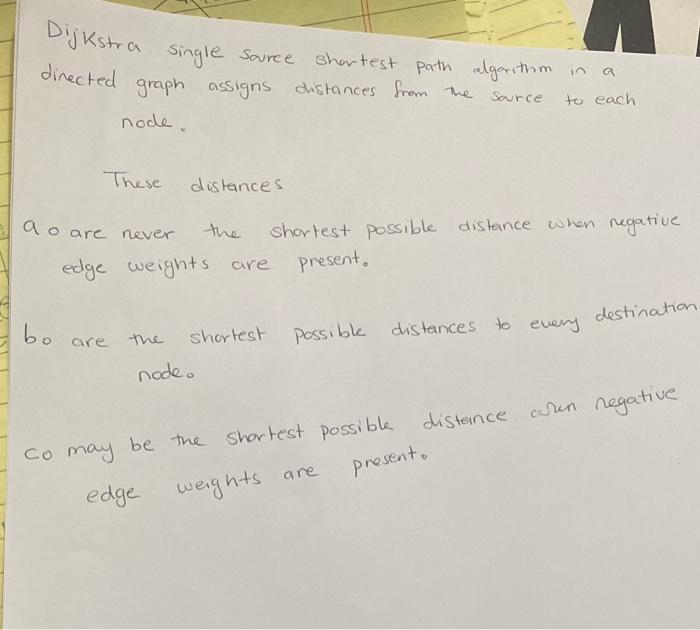 Dijkstra single source shortest path algorithm in a
directed graph assigns distances from the source to each
node.
These distances
a. are never the shortest possible distance when negative
edge weights are present.
b. are the shortest possible distances to every destination
node.
c. may be the shortest possible distance when negative
edge weights are present.